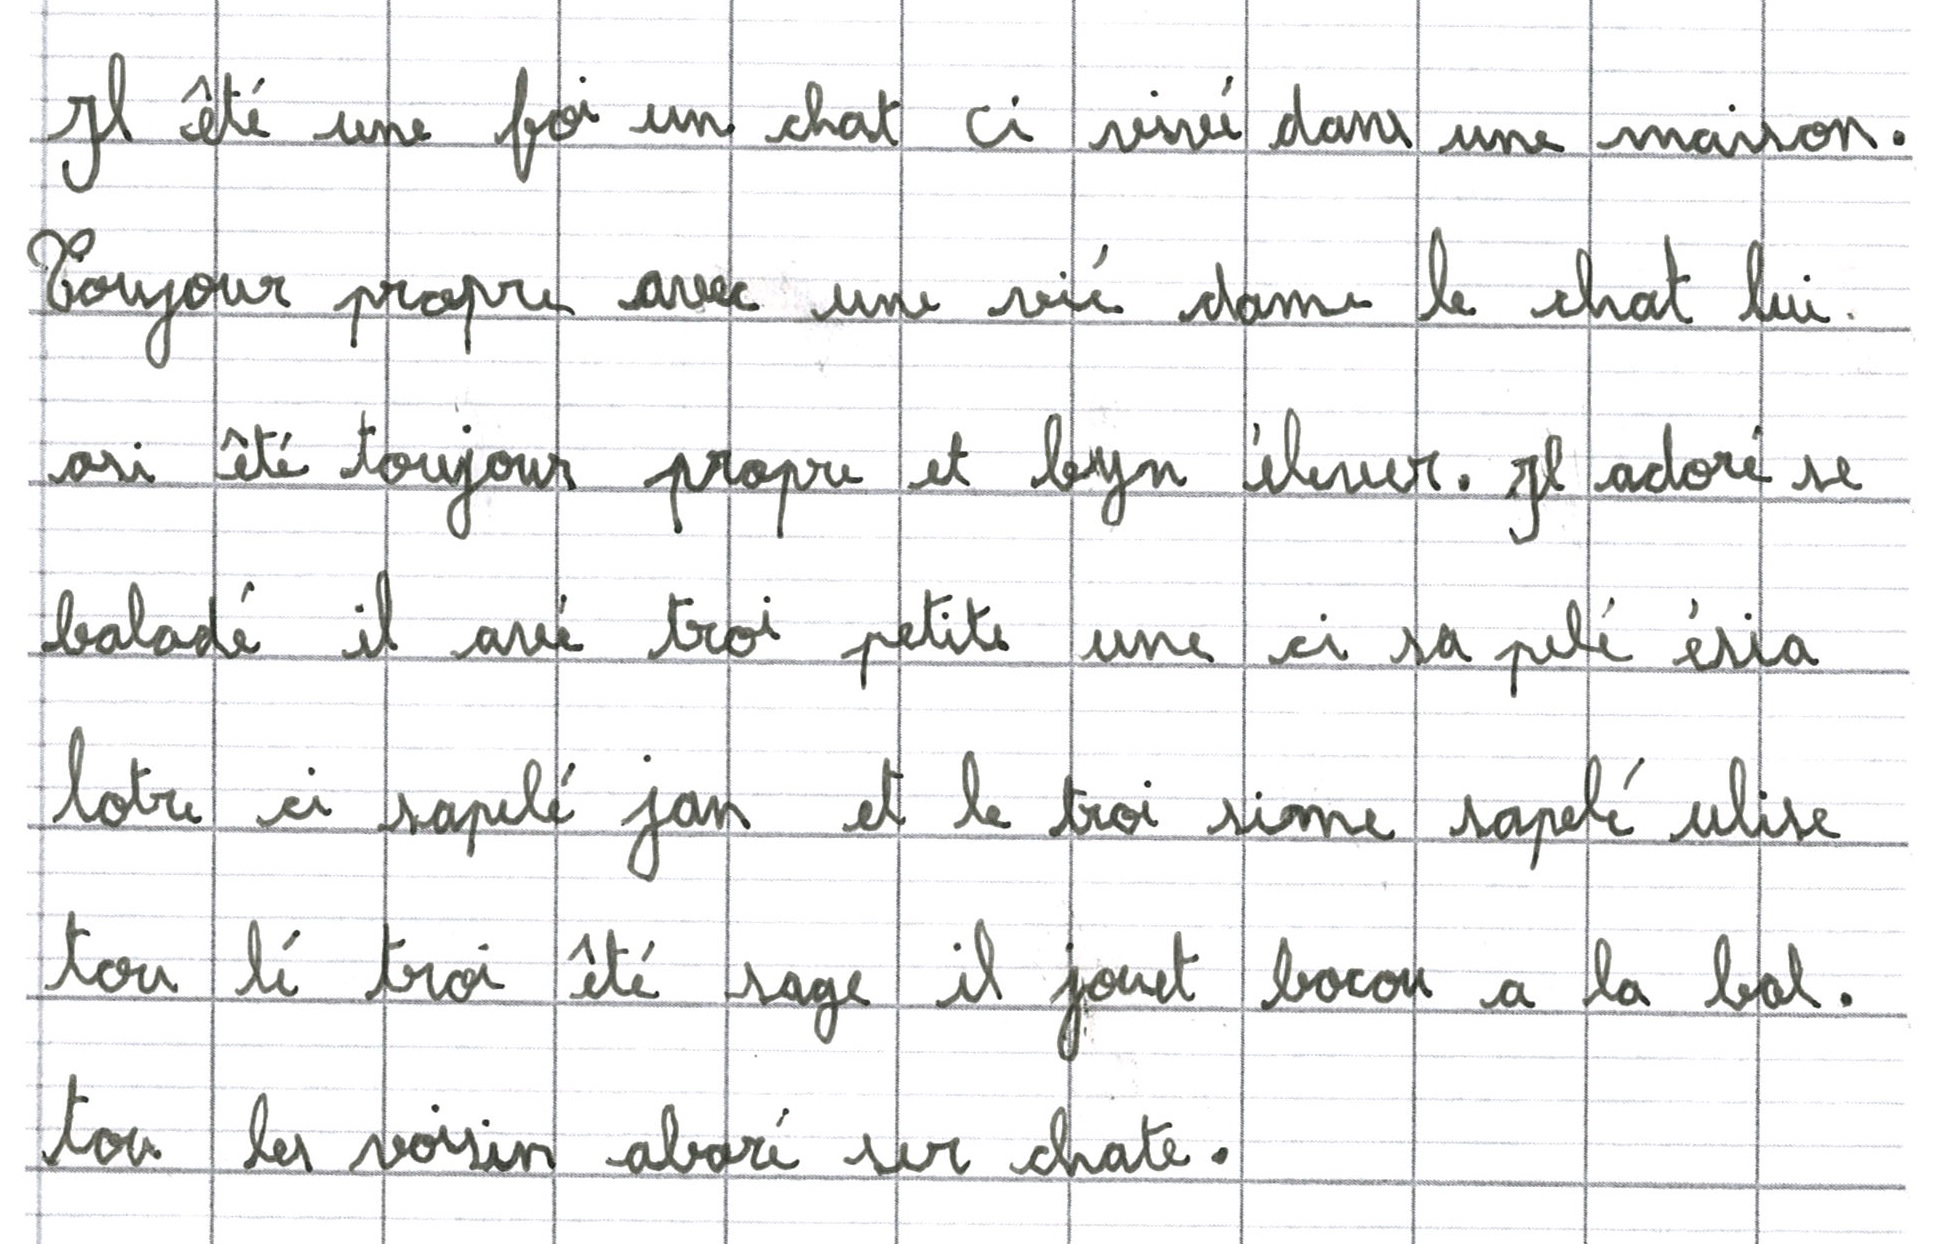 Il êté une foi un chat ci vivé dans une maison.
Toujour propre avec une vié dame le chat lui
osi êté toujours propre et byn élever. Il adoré se
baladé il avé troi petite une ci sa pelé ésia
lotre ci sapelé jan et le troi sième sapelé ulise
tou lé troi êté sage il jouet bocou a la bal.
tou les voisin aboré ser chate.